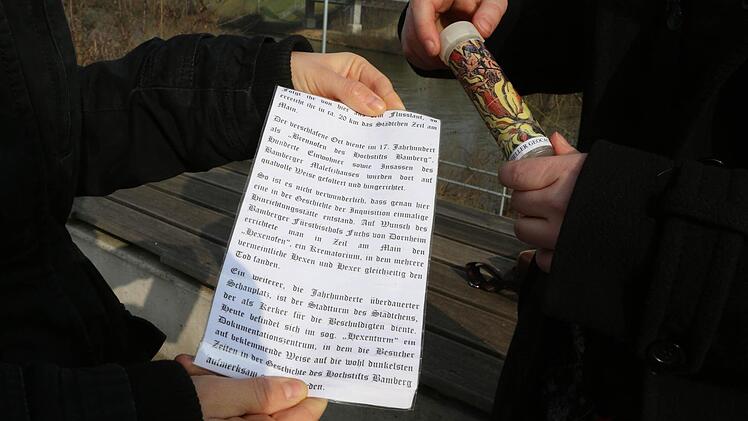 Folgt ihr von hier aus dem Flusslauf, so
erreicht ihr in ca. 20 km das Städtchen Zeil am
Main.
Der verschlafene Ort diente im 17. Jahrhundert
als „Brennofen des Hochstifts Bamberg".
Hunderte Einwohner sowie Insassen des
Bamberger Malefizhauses wurden dort auf
qualvolle Weise gefoltert und hingerichtet.
So ist es nicht verwunderlich, dass genau hier
eine in der Geschichte der Inquisition einmalige
Hinrichtungsstätte entstand. Auf Wunsch des
Bamberger Fürstbischofs Fuchs von Dornheim
errichtete man in Zeil am Main den
„Hexenofen", ein Krematorium, in dem mehrere
vermeintliche Hexen und Hexer gleichzeitig den
Tod fanden.
Ein weiterer, die Jahrhunderte überdauerter
Schauplatz, ist der Stadtturm des Städtchens,
der als Kerker für die Beschuldigten diente.
Heute befindet sich im sog. „Hexenturm" ein
Dokumentationszentrum, in dem die Besucher
auf beklemmende Weise auf die wohl dunkelsten
Zeiten in der Geschichte des Hochstifts Bamberg
aufmerksam